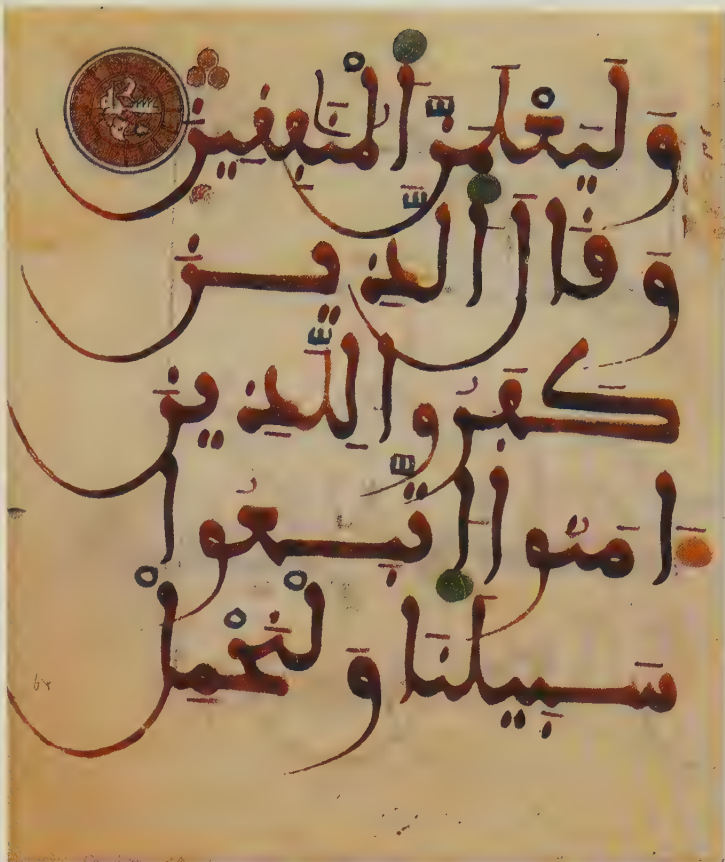 وَلَيَعْلَمَنَّ ٱلْمُنَٰفِقِينَ
وَقَالَ ٱلَّذِينَ
كَفَرُواْ لِلَّذِينَ
ءَامَنُواْ ٱتَّبِعُواْ
سَبِيلَنَا وَلْنَحْمِلْ